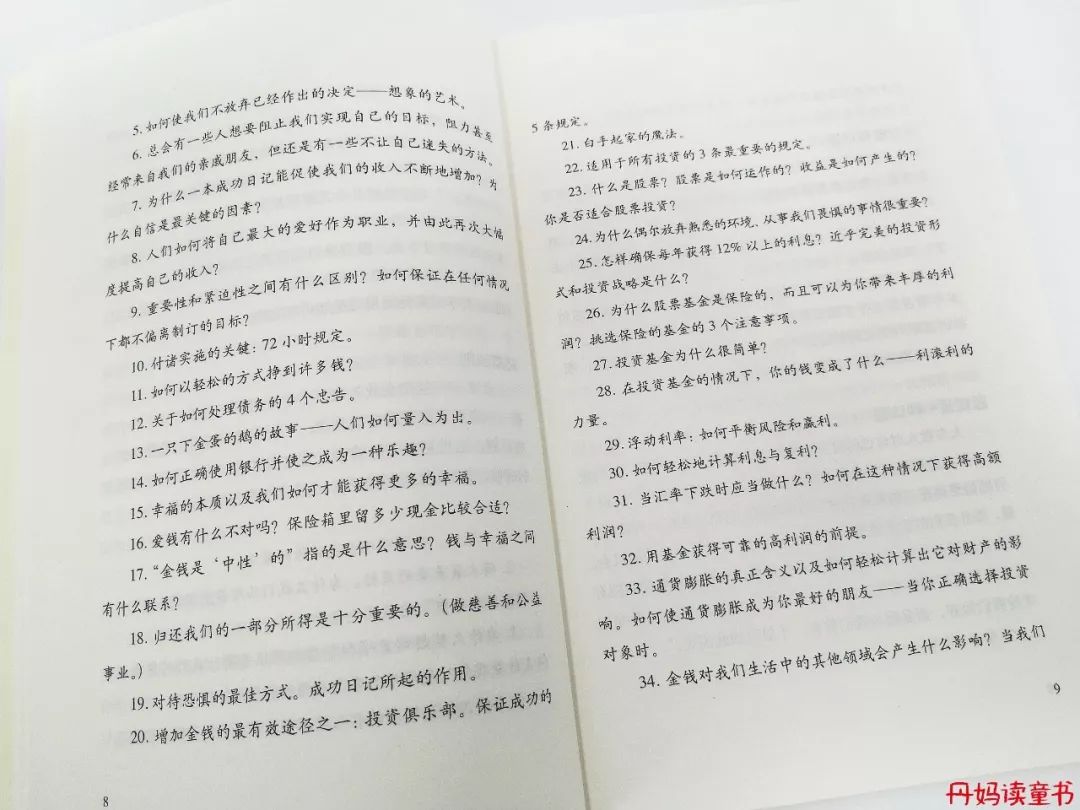 5. 如何使我们不放弃已经作出的决定——想象的艺术。
6. 总会有一些人想要阻止我们实现自己的目标，阻力甚至
经常来自我们的亲戚朋友，但还是有一些不让自己迷失的方法。
7. 为什么一本成功日记能促使我们的收入不断地增加？为
什么自信是最关键的因素？
8. 人们如何将自己最大的爱好作为职业，并由此再次大幅
度提高自己的收入？
9. 重要性和紧迫性之间有什么区别？如何保证在任何情况
下都不偏离制订的目标？
10. 付诸实施的关键：72 小时规定。
11. 如何以轻松的方式挣到许多钱？
12. 关于如何处理债务的 4 个忠告。
13. 一只下金蛋的鹅的故事——人们如何量入为出。
14. 如何正确使用银行并使之成为一种乐趣？
15. 幸福的本质以及我们如何才能获得更多的幸福。
16. 爱钱有什么不对吗？保险箱里留多少现金比较合适？
17. “金钱是‘中性’的”指的是什么意思？钱与幸福之间
有什么联系？
18. 归还我们的一部分所得是十分重要的。（做慈善和公益
事业。）
19. 对待恐惧的最佳方式。成功日记所起的作用。
20. 增加金钱的最有效途径之一：投资俱乐部。保证成功的
8
5 条规定。
21. 白手起家的魔法。
22. 适用于所有投资的 3 条最重要的规定。
23. 什么是股票？股票是如何运作的？收益是如何产生的？
你是否适合股票投资？
24. 为什么偶尔放弃熟悉的环境，从事我们畏惧的事情很重要？
25. 怎样确保每年获得 12% 以上的利息？近乎完美的投资形
式和投资战略是什么？
26. 为什么股票基金是保险的，而且可以为你带来丰厚的利
润？挑选保险的基金的 3 个注意事项。
27. 投资基金为什么很简单？
28. 在投资基金的情况下，你的钱变成了什么——利滚利的
力量。
29. 浮动利率：如何平衡风险和赢利。
30. 如何轻松地计算利息与复利？
31. 当汇率下跌时应当做什么？如何在这种情况下获得高额
利润？
32. 用基金获得可靠的高利润的前提。
33. 通货膨胀的真正含义以及如何轻松计算出它对财产的影
响。如何使通货膨胀成为你最好的朋友——当你正确选择投资
对象时。
34. 金钱对我们生活中的其他领域会产生什么影响？当我们
9
丹妈读童书